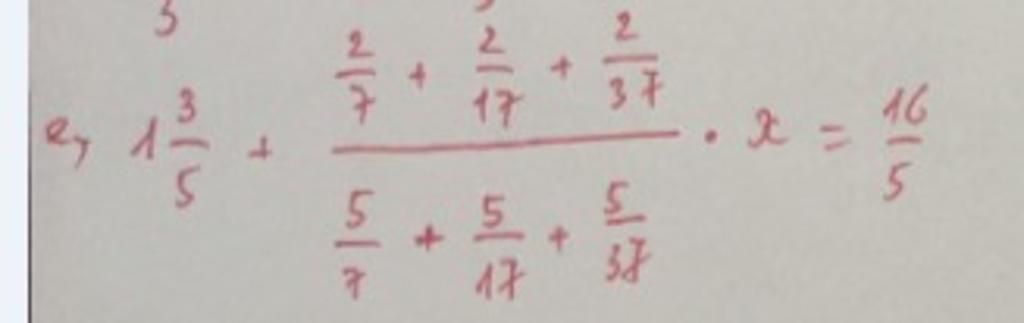 e, 1 3/5 + (2/7 + 2/17 + 2/37)/(5/7 + 5/17 + 5/37) . x = 16/5